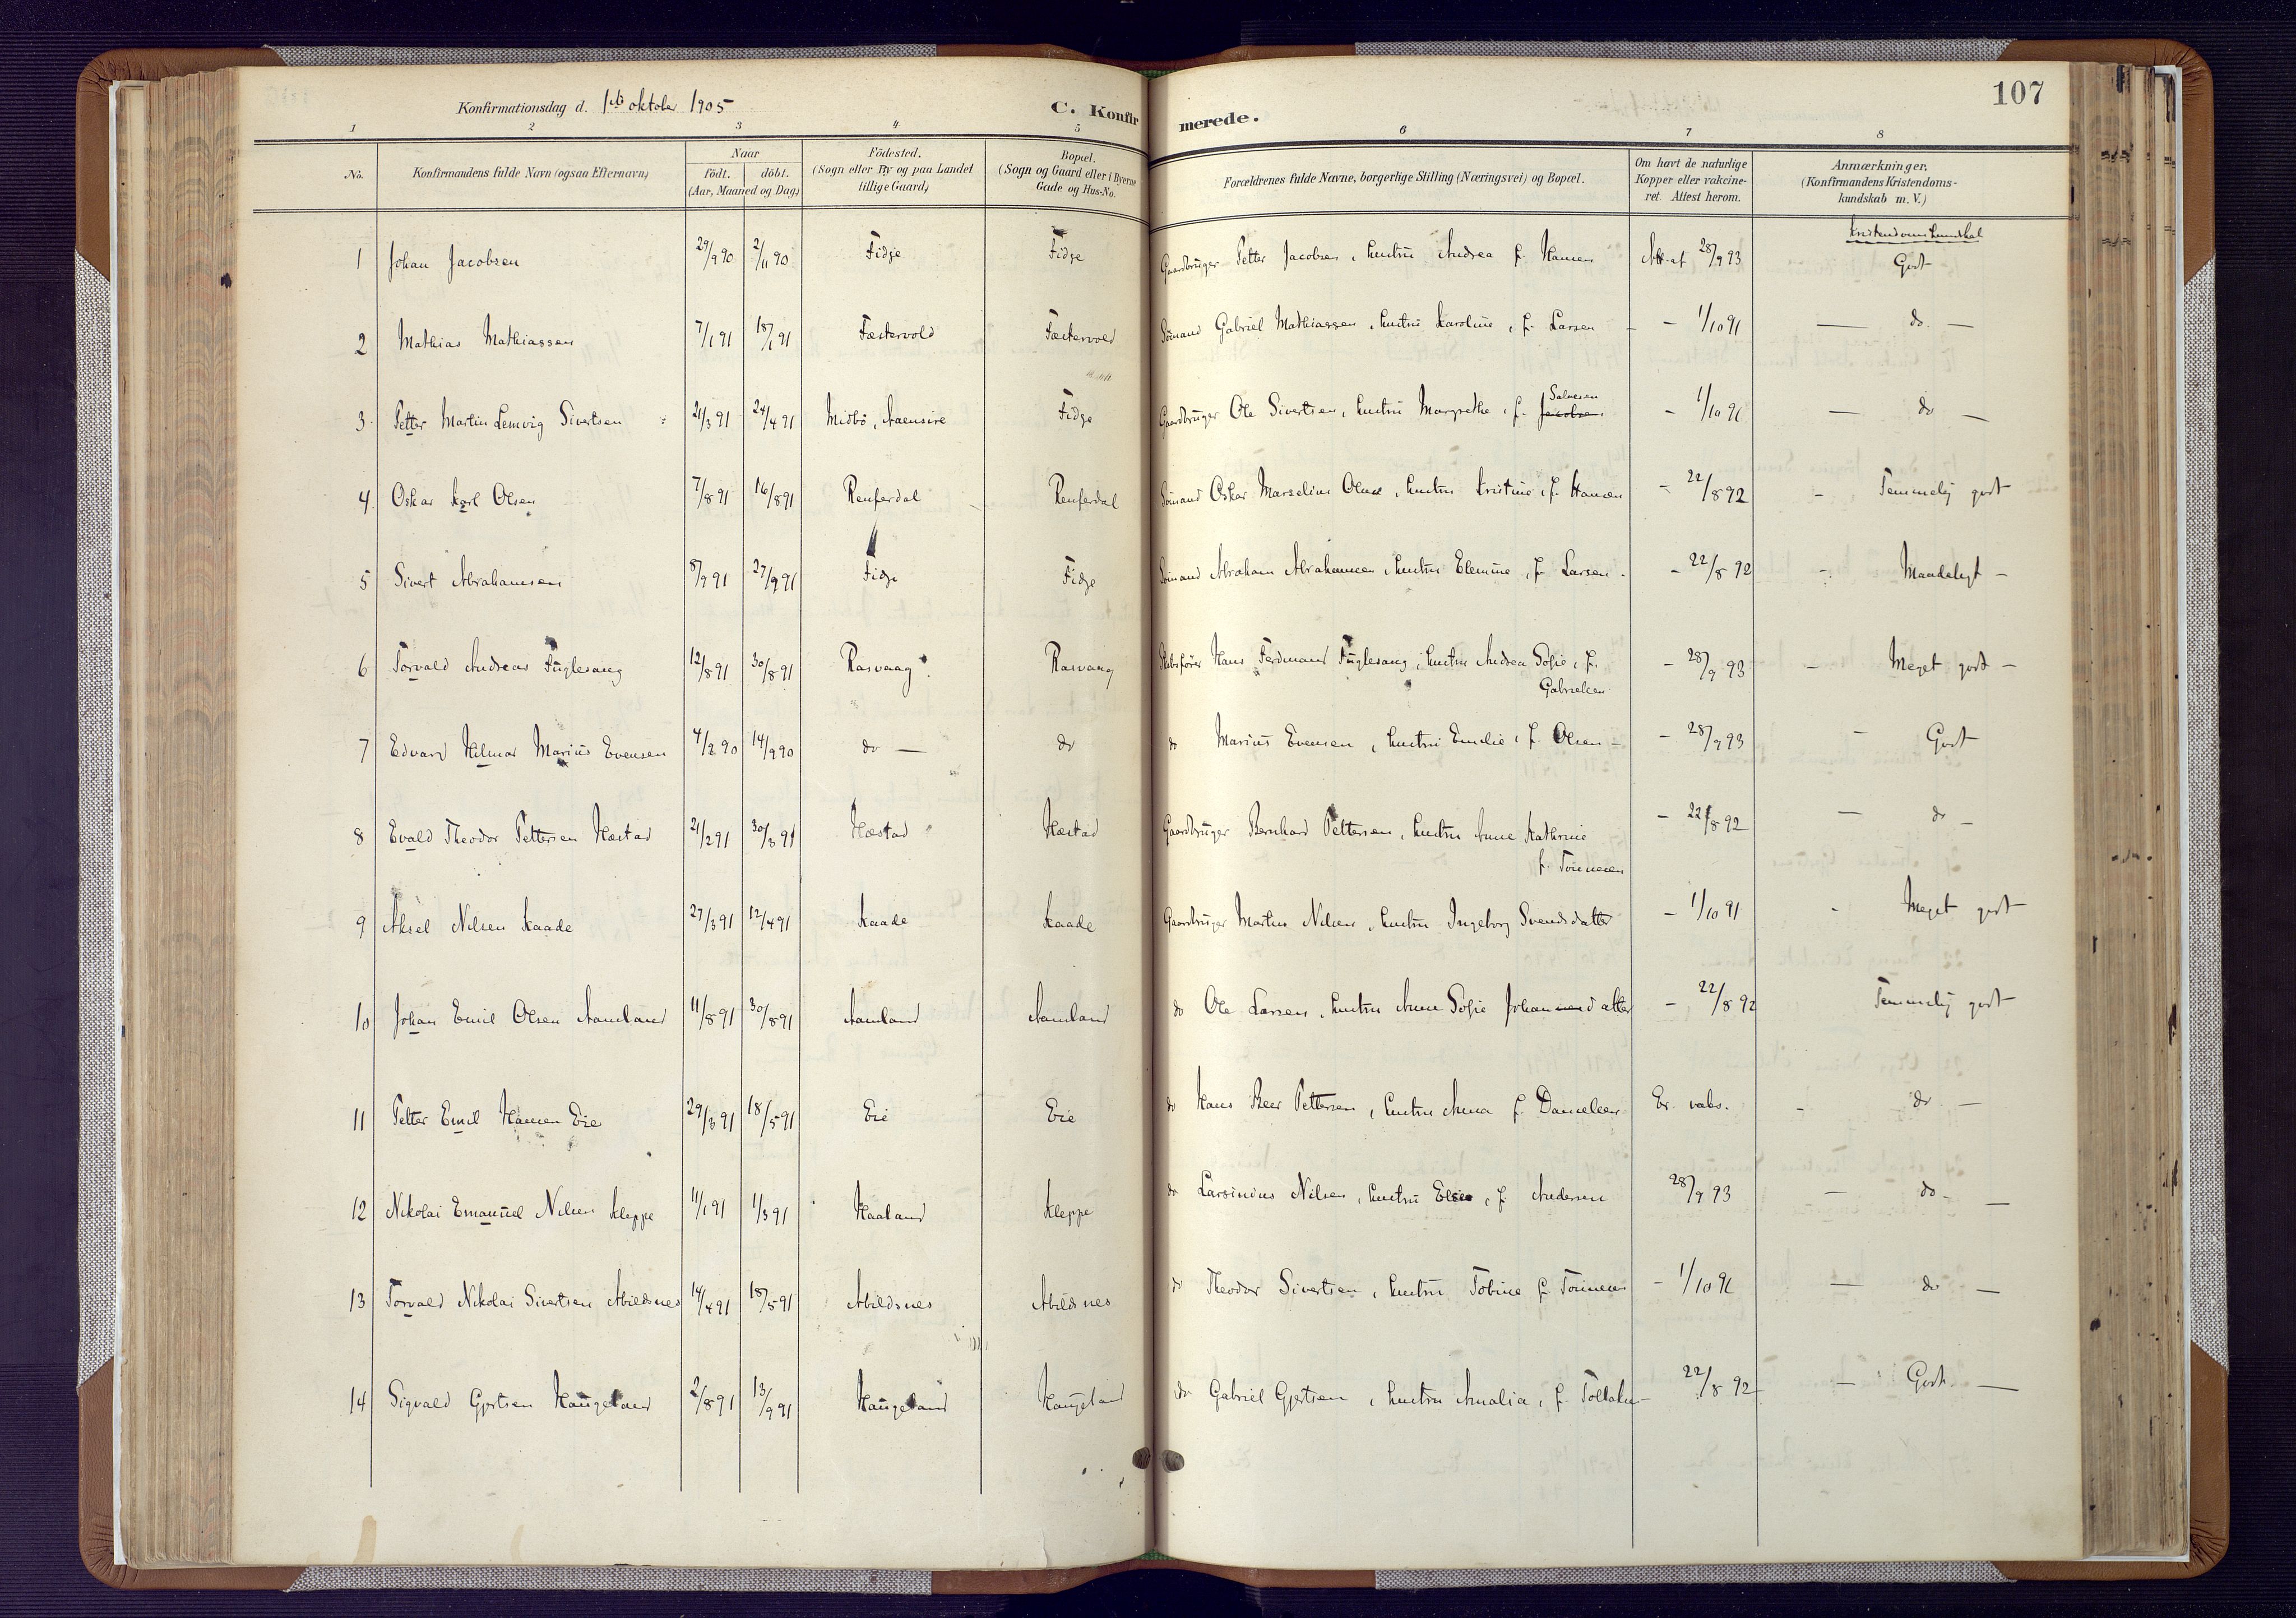 107
Konfirmationsdag d. 1ste oktober 1905
C. Konfirmerede.
1 2 3 4 5 6 7 8
No. Konfirmandens fulde Navn (ogsaa Efternavn) Naar födt. döbt. (Aar, Maaned og Dag) Födested. (Sogn eller By og paa Landet tillige Gaard) Bopæl. (Sogn og Gaard eller i Byerne Gade og Hus-No. Forældrenes fulde Navne, borgerlige Stilling (Næringsvei) og Bopæl. Om havt de naturlige Kopper eller vakcineret. Attest herom. Anmærkninger. (Konfirmandens Kristendomskundskab m. V.)
Kristendomskundskab
1 Johan Jacobsen 29/9 90 2/11 90 Fidje Fidje Gaardbruger Petter Jacobsen, hustru Andrea f. Hansen Att. af 28/9 93 Godt
2 Mathias Mathiassen 7/1 91 18/1 91 Fæstervold Fæstervold Sømand Gabriel Mathiassen, hustru Karoline, f. Larsen - 1/10 91 — do. —
3 Petter Martin Lemvig Sivertsen 21/3 91 24/4 91 Midbø, Aaensire Fidje Gaardbruger Ole Sivertsen, hustru Margrethe, f. Jacobsen Salvesen - 1/10 91 — do —
4. Oskar Karl Olsen 7/8 91 16/8 91 Renferdal Renferdal Sømand Oskar Marselius Olsen, hustru Kristine, f. Hansen - 22/8 92 - Temmelig godt
5 Sivert Abrahamsen 8/9 91 27/9 91 Fidje Fidje Sømand Abraham Abrahamsen, hustru Elemine, f. Larsen - - 22/8 92 - Maadeligt -
6 Torvald Andreas Fuglesang 12/8 91 30/8 91 Rasvaag Rasvaag Skibsfører Hans Ferdinand Fuglesang, hustru Andrea Sofie, f. Gabrielsen - 28/9 93 - Meget godt -
7 Edvard Hilmar Marius Evensen 4/8 90 14/9 90 do — do do Marius Evensen, hustru Emilie, f. Olsen - - 28/9 93 - Godt
8 Evald Theodor Pettersen Hæstad 21/2 91 30/3 91 Hæstad Hæstad Gaardbruger Bernhard Pettersen, hustru Anne Kathrine f. Tønnesen - 22/8 92 — do —
9 Aksel Nilsen Kaade 27/3 91 12/4 91 Kaade Kaade Gaardbruger Martin Nilsen, hustru Ingeborg Svendsdatter - 1/10 91 - Meget godt
10 Johan Emil Olsen Aamland 11/8 91 30/8 91 Aamland Aamland do Ole Larsen, hustru Anne Sofie Johannesdatter - 22/8 92 Temmelig godt
11 Petter Emil Hansen Eie 29/3 91 18/5 91 Eie Eie do Hans Peer Pettersen, hustru Anna f. Danielsen Er vaks. - do —
12 Nikolai Emanuel Nilsen Kleppe 11/1 91 1/3 91 Haaland Kleppe do Larsinius Nilsen, hustru Elise, f. Andersen 28/9 93 — do- —
13 Torvald Nikolai Sivertsen Abildsnes 14/4 91 18/5 91 Abildsnes Abildsnes do Theodor Sivertsen, hustru Tobine f. Tønnesen - 1/10 91 — do —
14 Sigvald Gjertsen Haugeland 2/8 91 13/9 91 Haugeland Haugeland do Gabriel Gjertsen, hustru Amalia, f. Tollaksen 22/8 92 — Godt —